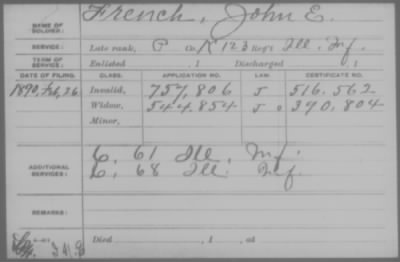 NAME OF SOLDIER: French, John E.
SERVICE: Late rank, P Co. K 123 Reg't Ill. Inf.
TERM OF SERVICE: Enlisted , 1 Discharged , 1
DATE OF FILING. CLASS. APPLICATION NO. LAW. CERTIFICATE NO.
1890, Feb, 26 Invalid, 757,806 J 516,562
Widow, 544,854 J o 390,804
Minor,
ADDITIONAL SERVICES: C, 61 Ill. Inf.
C, 68 Ill. Inf.
REMARKS:
Died , 1 , at